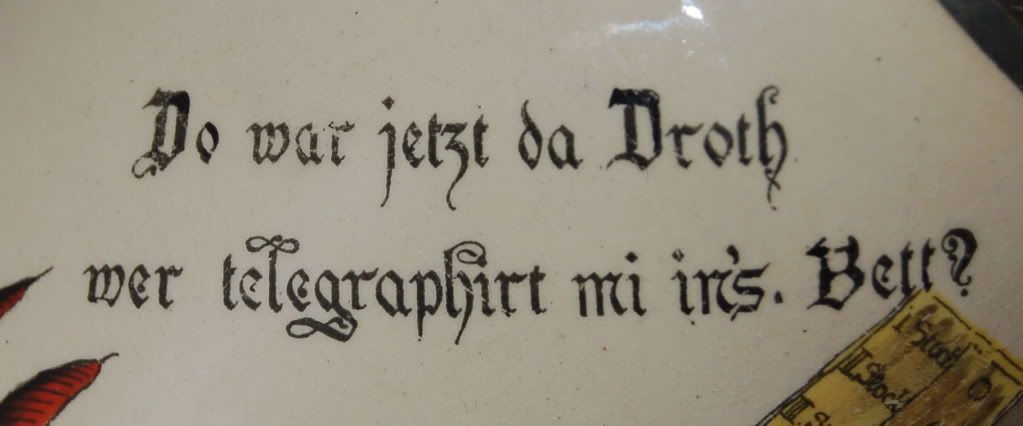 Do war jetzt da Droth
wer telegraphirt mi in's. Bett?
I. Stock
II. Stock
III.